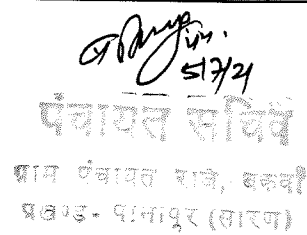 5/7/21
पंचायत सचिव
ग्राम पंचायत राज, बकवाँ
प्रखण्ड- पानापुर (सारण)